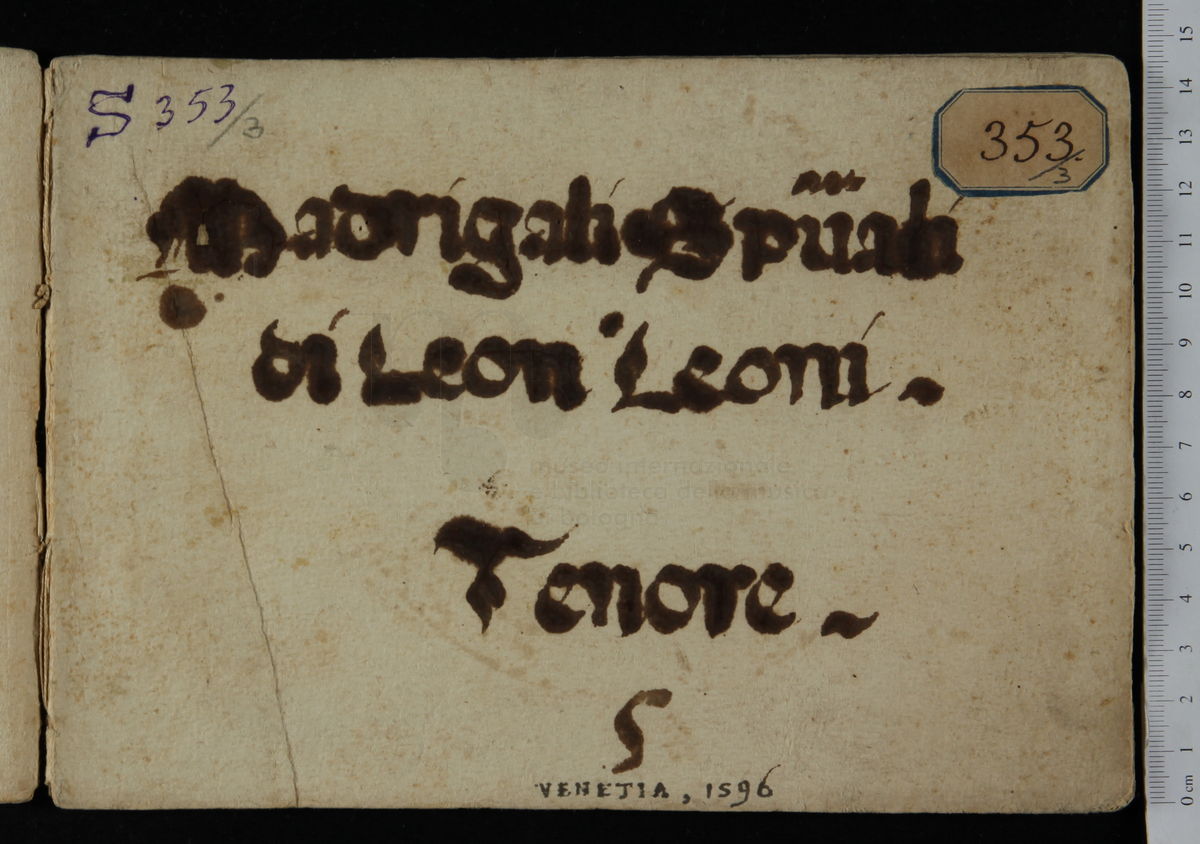 S 353/3
353/3
Madrigali Spũali
di Leon Leoni
Tenore
5
VENETIA, 1596
museo internazionale
e biblioteca della musica
di bologna
15
14
13
12
11
10
9
8
7
6
5
4
3
2
1
0 cm